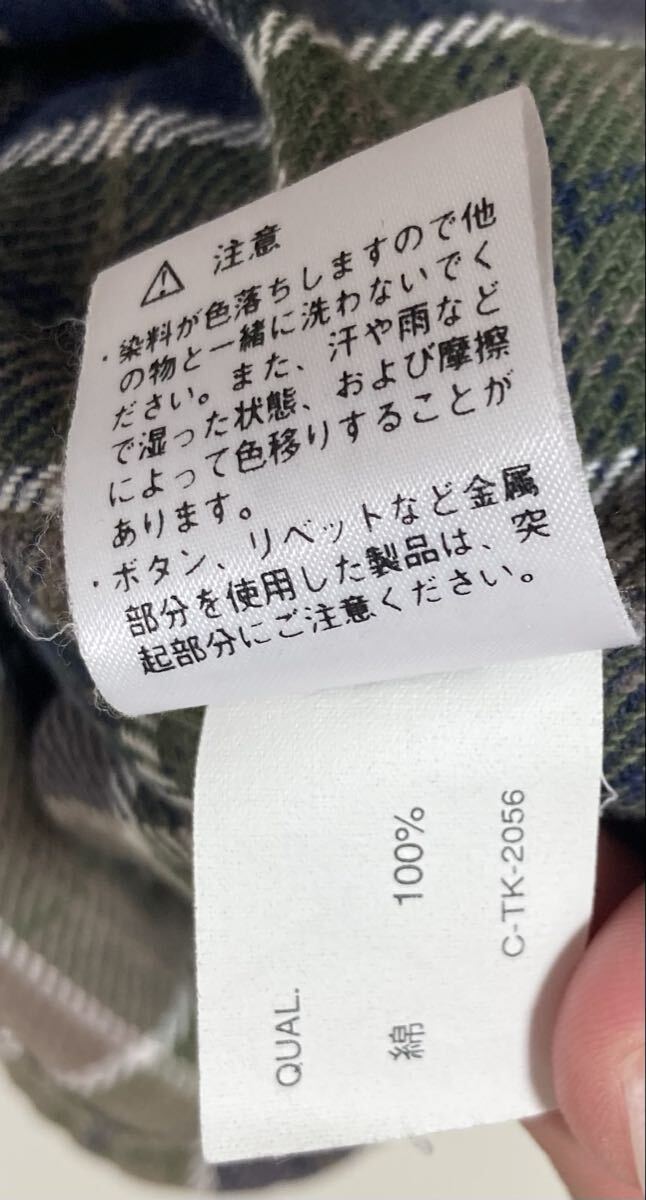 ⚠ 注意
・染料が色落ちしますので他
の物と一緒に洗わないでく
ださい。また、汗や雨など
で湿った状態、および摩擦
によって色移りすることが
あります。
・ボタン、リベットなど金属
部分を使用した製品は、突
起部分にご注意ください。
QUAL.
綿 100%
C-TK-2056